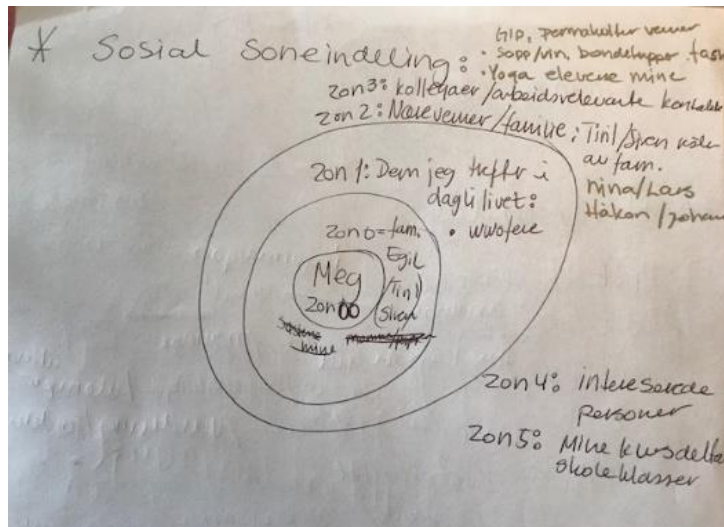 * Sosial soneindeling:
GIP, permakultur venner
• Sopp/vin, bondekopper
• Yoga elevene mine
zon 3: kollegaer/arbeidsrelevante
zon 2: Nære venner/familie: Tini/
av fam.
Nina/Lars
Håkon/
zon 1: Dem jeg treffer i
dagli livet:
• wwofere
zon 0 = fam.
Egil
/Tini
Meg
zon 00
mine
zon 4: interesserede
personer
zon 5: Mine kursdelta
skoleklasser